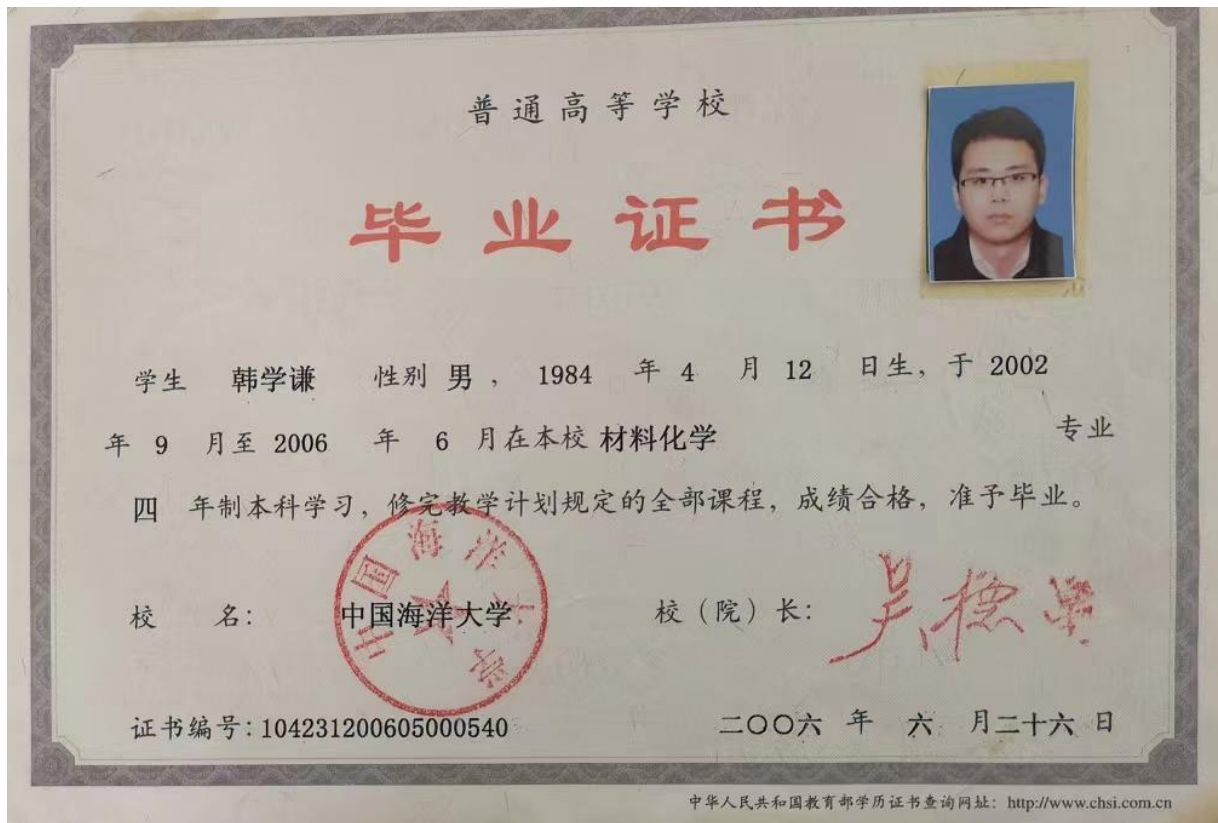 普通高等学校
毕业证书
学生 韩学谦 性别 男 ， 1984 年 4 月 12 日生，于 2002
年 9 月至 2006 年 6 月在本校 材料化学 专业
四 年制本科学习，修完教学计划规定的全部课程，成绩合格，准予毕业。
校 名： 中国海洋大学 校（院）长： 吴德星
中国海洋大学
证书编号：104231200605000540 二〇〇六 年 六 月二十六 日
中华人民共和国教育部学历证书查询网址：http://www.chsi.com.cn